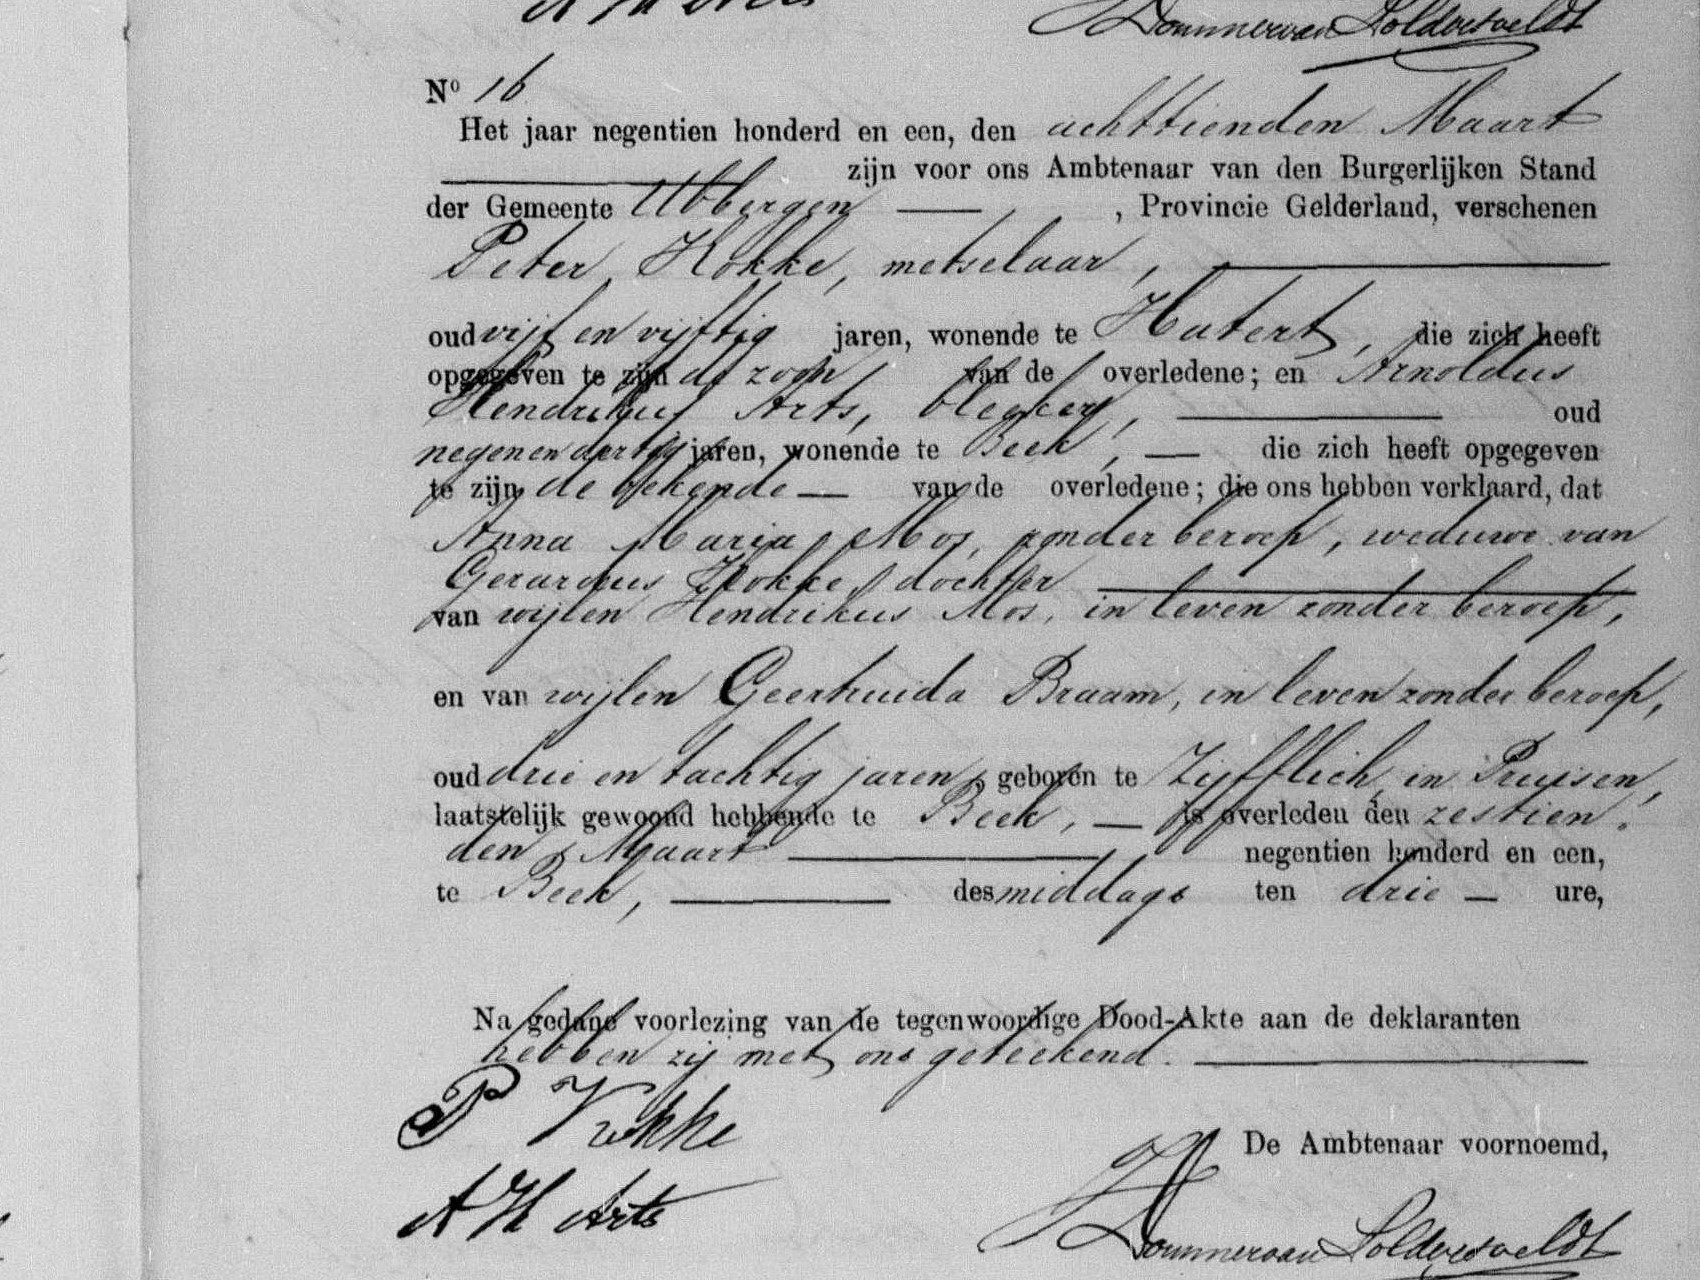 A H Arts
Dommer van Poldersveldt
No 16
Het jaar negentien honderd en een, den achttienden Maart
zijn voor ons Ambtenaar van den Burgerlijken Stand
der Gemeente Ubbergen, Provincie Gelderland, verschenen
Peter Kokke, metselaar,
oud vijf en vijftig jaren, wonende te Hatert, die zich heeft
opgegeven te zijn de zoon van de overledene; en Arnoldus
Hendrikus Arts, bleeker, oud
negen en dertig jaren, wonende te Beek, die zich heeft opgegeven
te zijn de bekende van de overledene; die ons hebben verklaard, dat
Anna Maria Mos, zonder beroep, weduwe van
Gerardus Kokke, dochter
van wijlen Hendrikus Mos, in leven zonder beroep,
en van wijlen Geerhuida Braam, in leven zonder beroep,
oud drie en tachtig jaren, geboren te Zijfflich in Pruisen,
laatstelijk gewoond hebbende te Beek, is overleden den zestien-
den Maart negentien honderd en een,
te Beek, des middags ten drie ure,
Na gedane voorlezing van de tegenwoordige Dood-Akte aan de deklaranten
hebben zij met ons geteekend.
P Kokke
De Ambtenaar voornoemd,
A H Arts
Dommer van Poldersveldt